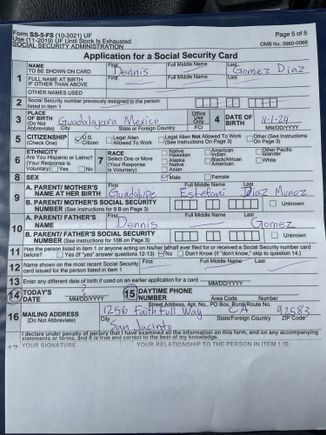 Form SS-5-FS (10-2021) UF
Use (11-2019) UF Until Stock Is Exhausted
SOCIAL SECURITY ADMINISTRATION
Page 5 of 5
OMB No. 0960-0066
Application for a Social Security Card
1 NAME TO BE SHOWN ON CARD First Dennis Full Middle Name Last Gomez Diaz
FULL NAME AT BIRTH IF OTHER THAN ABOVE First Full Middle Name Last
OTHER NAMES USED
2 Social Security number previously assigned to the person listed in item 1
3 PLACE OF BIRTH (Do Not Abbreviate) Guadalajara Mexico
City State or Foreign Country Office Use Only FCI
4 DATE OF BIRTH MM/DD/YYYY
5 CITIZENSHIP (Check One) U.S. Citizen Legal Alien Allowed To Work Legal Alien Not Allowed To Work (See Instructions On Page 3) Other (See Instructions On Page 3)
6 ETHNICITY Are You Hispanic or Latino? (Your Response is Voluntary) Yes No
7 RACE Select One or More (Your Response is Voluntary) Native Hawaiian Alaska Native Asian American Indian Black/African American Other Pacific Islander White
8 SEX Male Female
9 A. PARENT/ MOTHER'S NAME AT HER BIRTH First Full Middle Name Last Diaz Munoz
B. PARENT/ MOTHER'S SOCIAL SECURITY NUMBER (See instructions for 9 B on Page 3) Unknown
10 A. PARENT/ FATHER'S NAME First Dennis Full Middle Name Last Gomez
B. PARENT/ FATHER'S SOCIAL SECURITY NUMBER (See instructions for 10B on Page 3) Unknown
11 Has the person listed in item 1 or anyone acting on his/her behalf ever filed for or received a Social Security number card before?
Yes (If "yes" answer questions 12-13) No Don't Know (If "don't know," skip to question 14.)
12 Name shown on the most recent Social Security card issued for the person listed in item 1 First Full Middle Name Last
13 Enter any different date of birth if used on an earlier application for a card MM/DD/YYYY
14 TODAY'S DATE MM/DD/YYYY
15 DAYTIME PHONE NUMBER Area Code Number
16 MAILING ADDRESS (Do Not Abbreviate) Street Address, Apt. No., PO Box, Rural Route No.
1256 Faithfull Way CA 92583
City State/Foreign Country ZIP Code
San Jacinto
I declare under penalty of perjury that I have examined all the information on this form, and on any accompanying statements or forms, and it is true and correct to the best of my knowledge.
17 YOUR SIGNATURE YOUR RELATIONSHIP TO THE PERSON IN ITEM 1 IS: